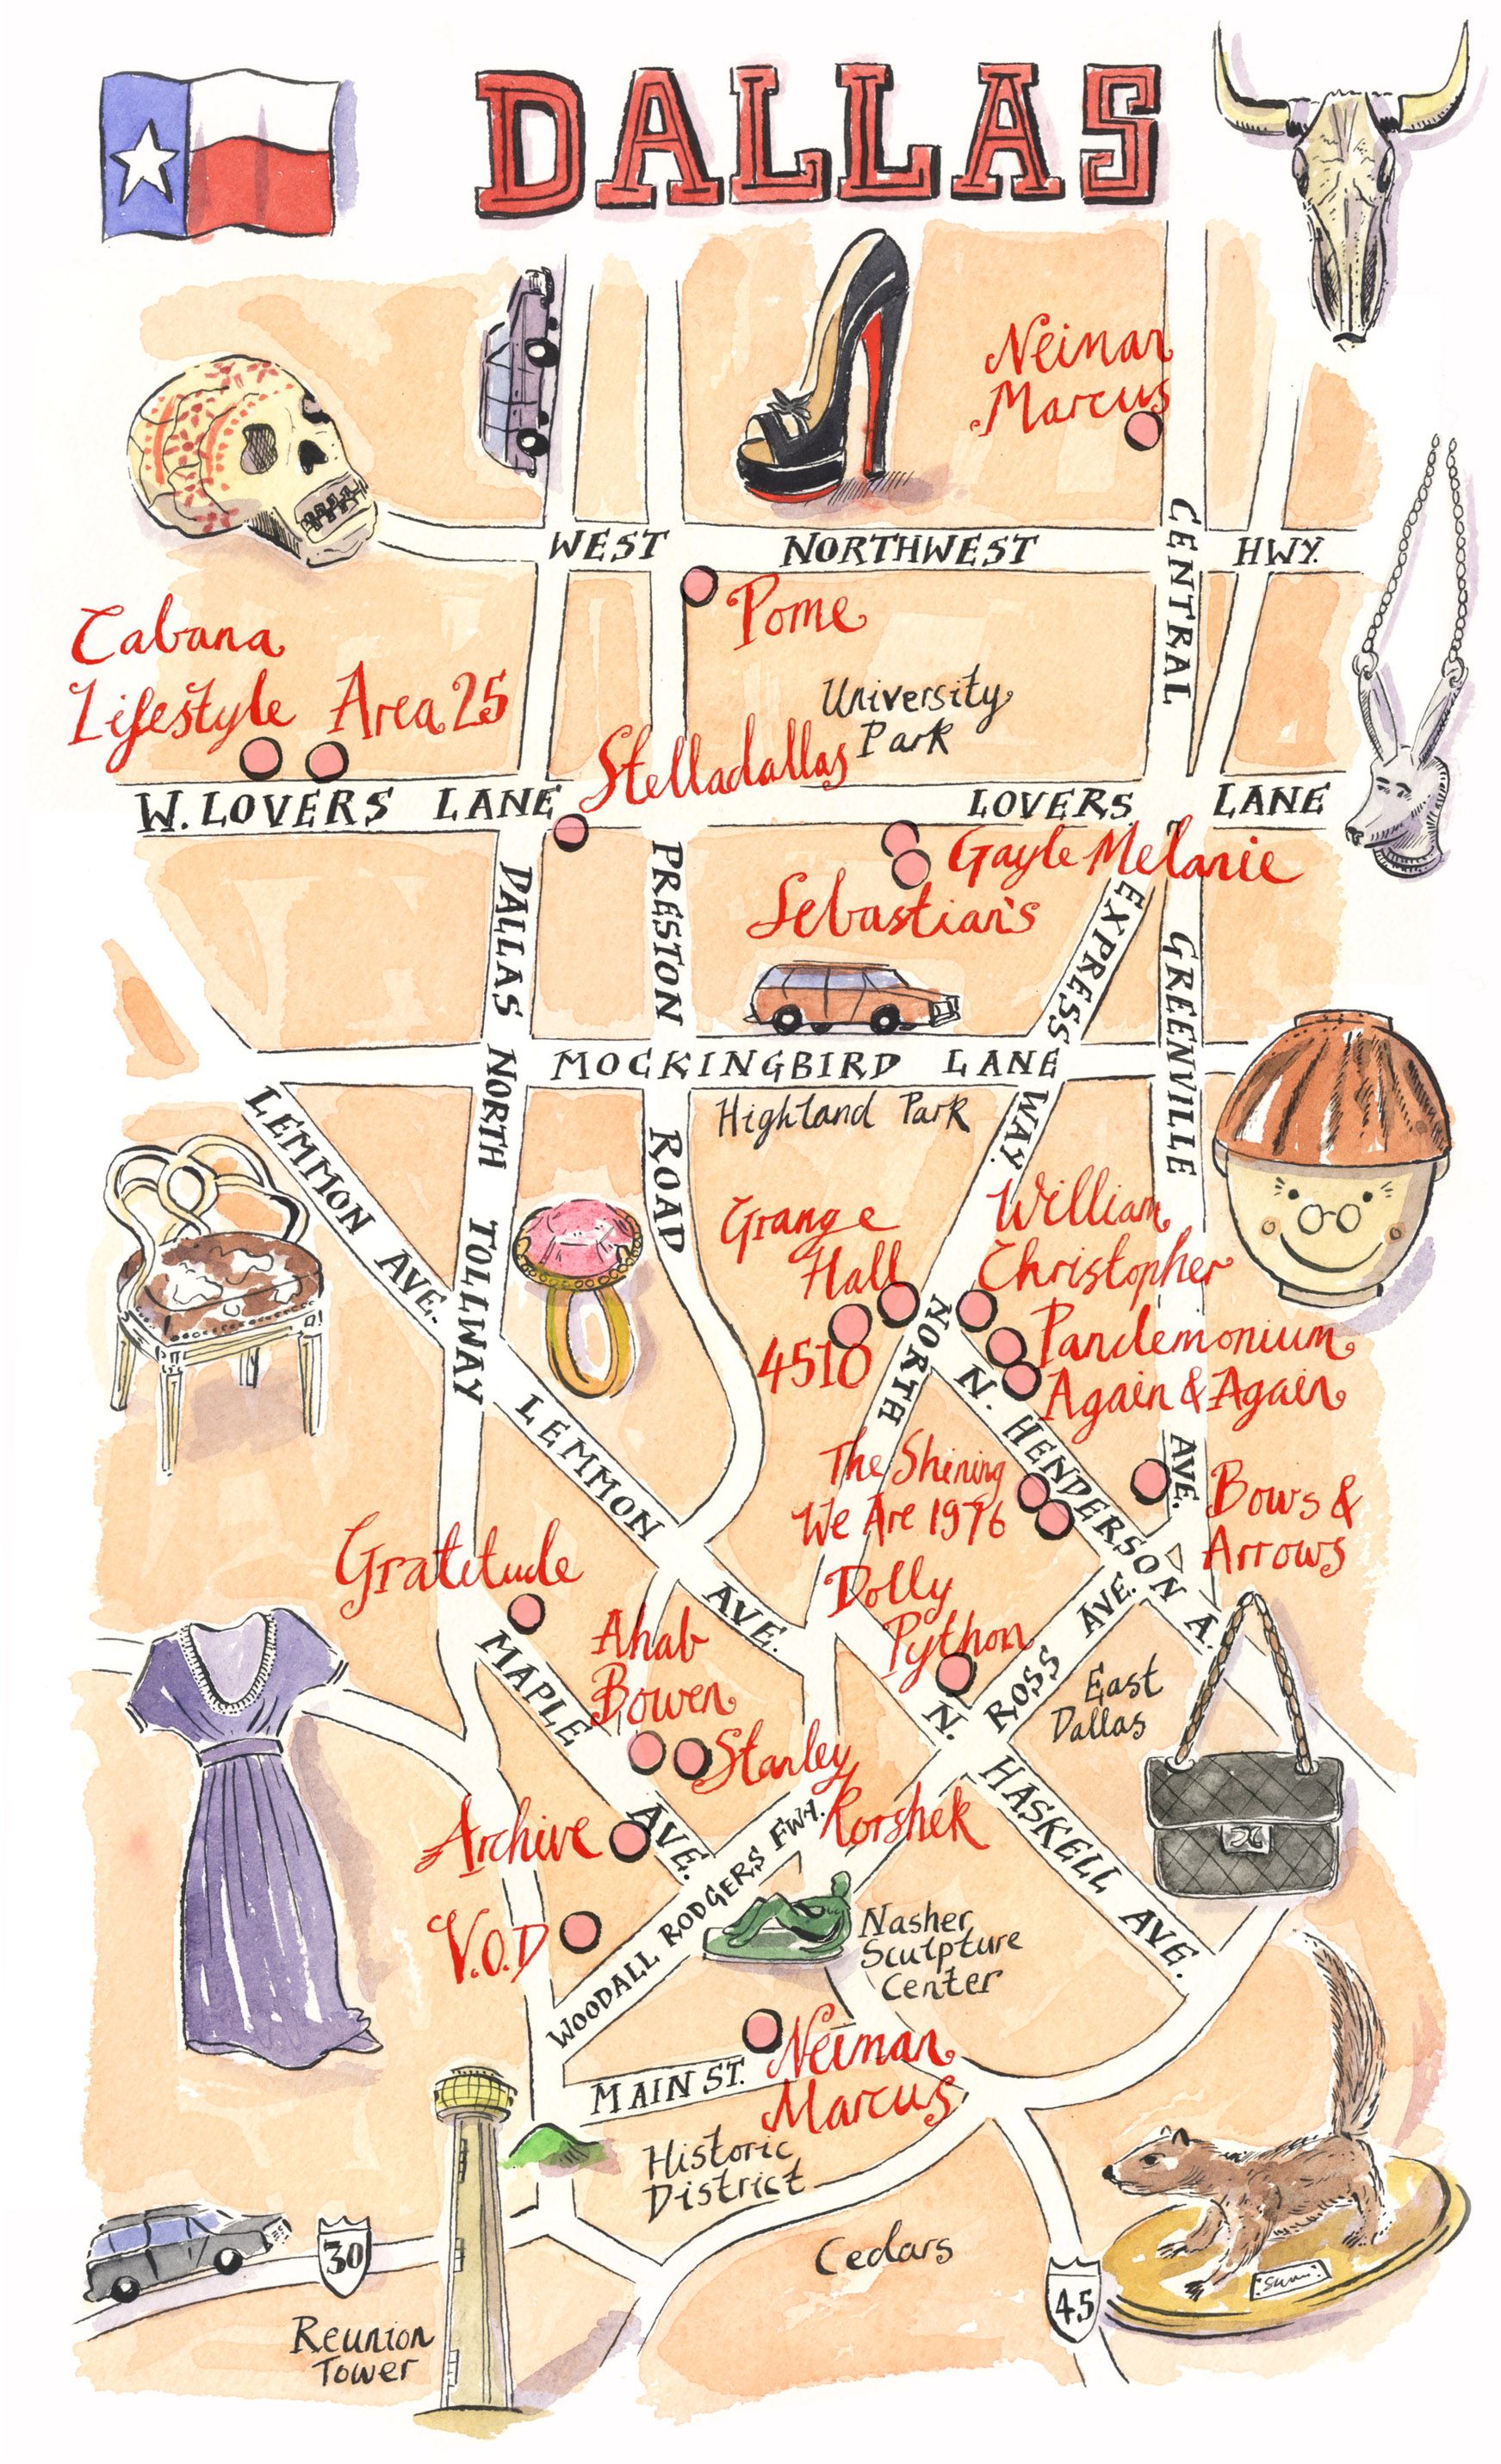 DALLAS
Neiman
Marcus
WEST NORTHWEST HWY.
CENTRAL
Pome
Cabana
Lifestyle Area 25
University
Park
Stelladallas
W. LOVERS LANE
LOVERS LANE
Gayle Melanie
Sebastian's
EXPRESS
WAY.
DALLAS NORTH TOLLWAY
PRESTON
ROAD
GREENVILLE
AVE.
MOCKINGBIRD LANE
Highland Park
LEMMON AVE.
Grange
Hall
4510
William
Christopher
Pandemonium
Again & Again
NORTH
N. HENDERSON A.
LEMMON
AVE.
The Shining
We Are 1976
Bows &
Arrows
Gratitude
Dolly
Python
Ahab
Bowen
MAPLE
AVE.
ROSS AVE.
East
Dallas
N.
HASKELL
AVE.
Stanley
Korshek
Archive
WOODALL RODGERS FWY.
V.O.D
Nasher
Sculpture
Center
Neiman
Marcus
MAIN ST.
Historic
District
Cedars
30
45
Reunion
Tower